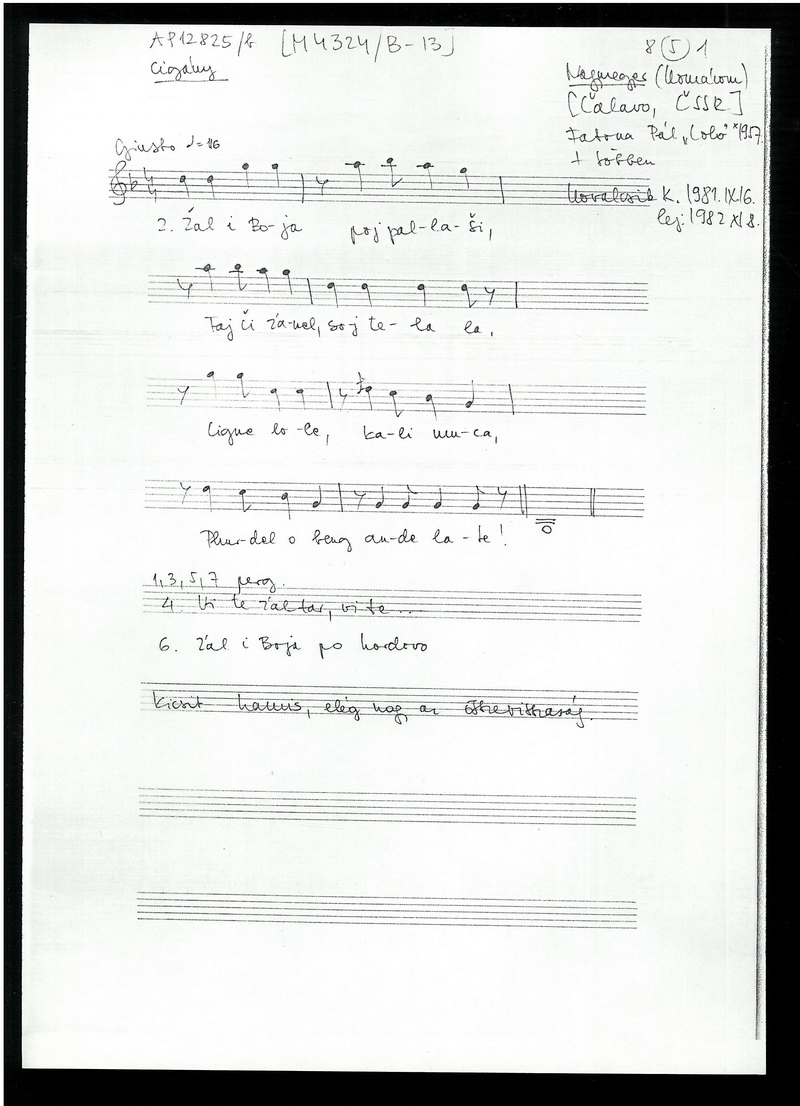 AP12825/b [M4324/B-13]
8 (5) 1
Cigány
Nagymegyer (Komárom)
[Čalavo, ČSSR]
Fatona Pál, "Colo" *1957.
+ többen
Kovalcsik K. 1981.IX.16.
lej: 1982 XI 8.
Giusto
2. Žal i Bo-ja poj pal-la-ši,
Taj či ža-nel, so-j te-la la,
Cigne lo-le, ka-li mu-ca,
Phur-del o beng an-de la-te!
1, 3, 5, 7 perg.
4. Vi te žal tar, vi te ...
6. Žal i Boja po hordovo
Kicsit hamis, elég nagy az összevisszaság.